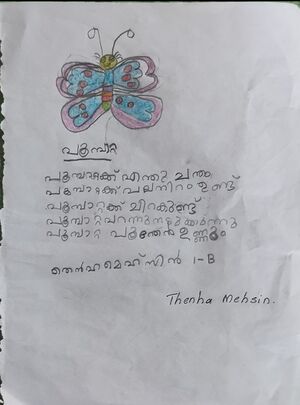 പൂമ്പാറ്റ
പൂമ്പാറ്റക്ക് എന്തു ചന്തം
പൂമ്പാറ്റക്ക് പലനിറം ഉണ്ട്
പൂമ്പാറ്റക്ക് ചിറകുണ്ട്
പൂമ്പാറ്റ പറന്നു
പൂമ്പാറ്റ പൂന്തേൻ ഉണ്ണും
തെൻഹ മെഹ്സിൻ 1-B
Thenha Mehsin.